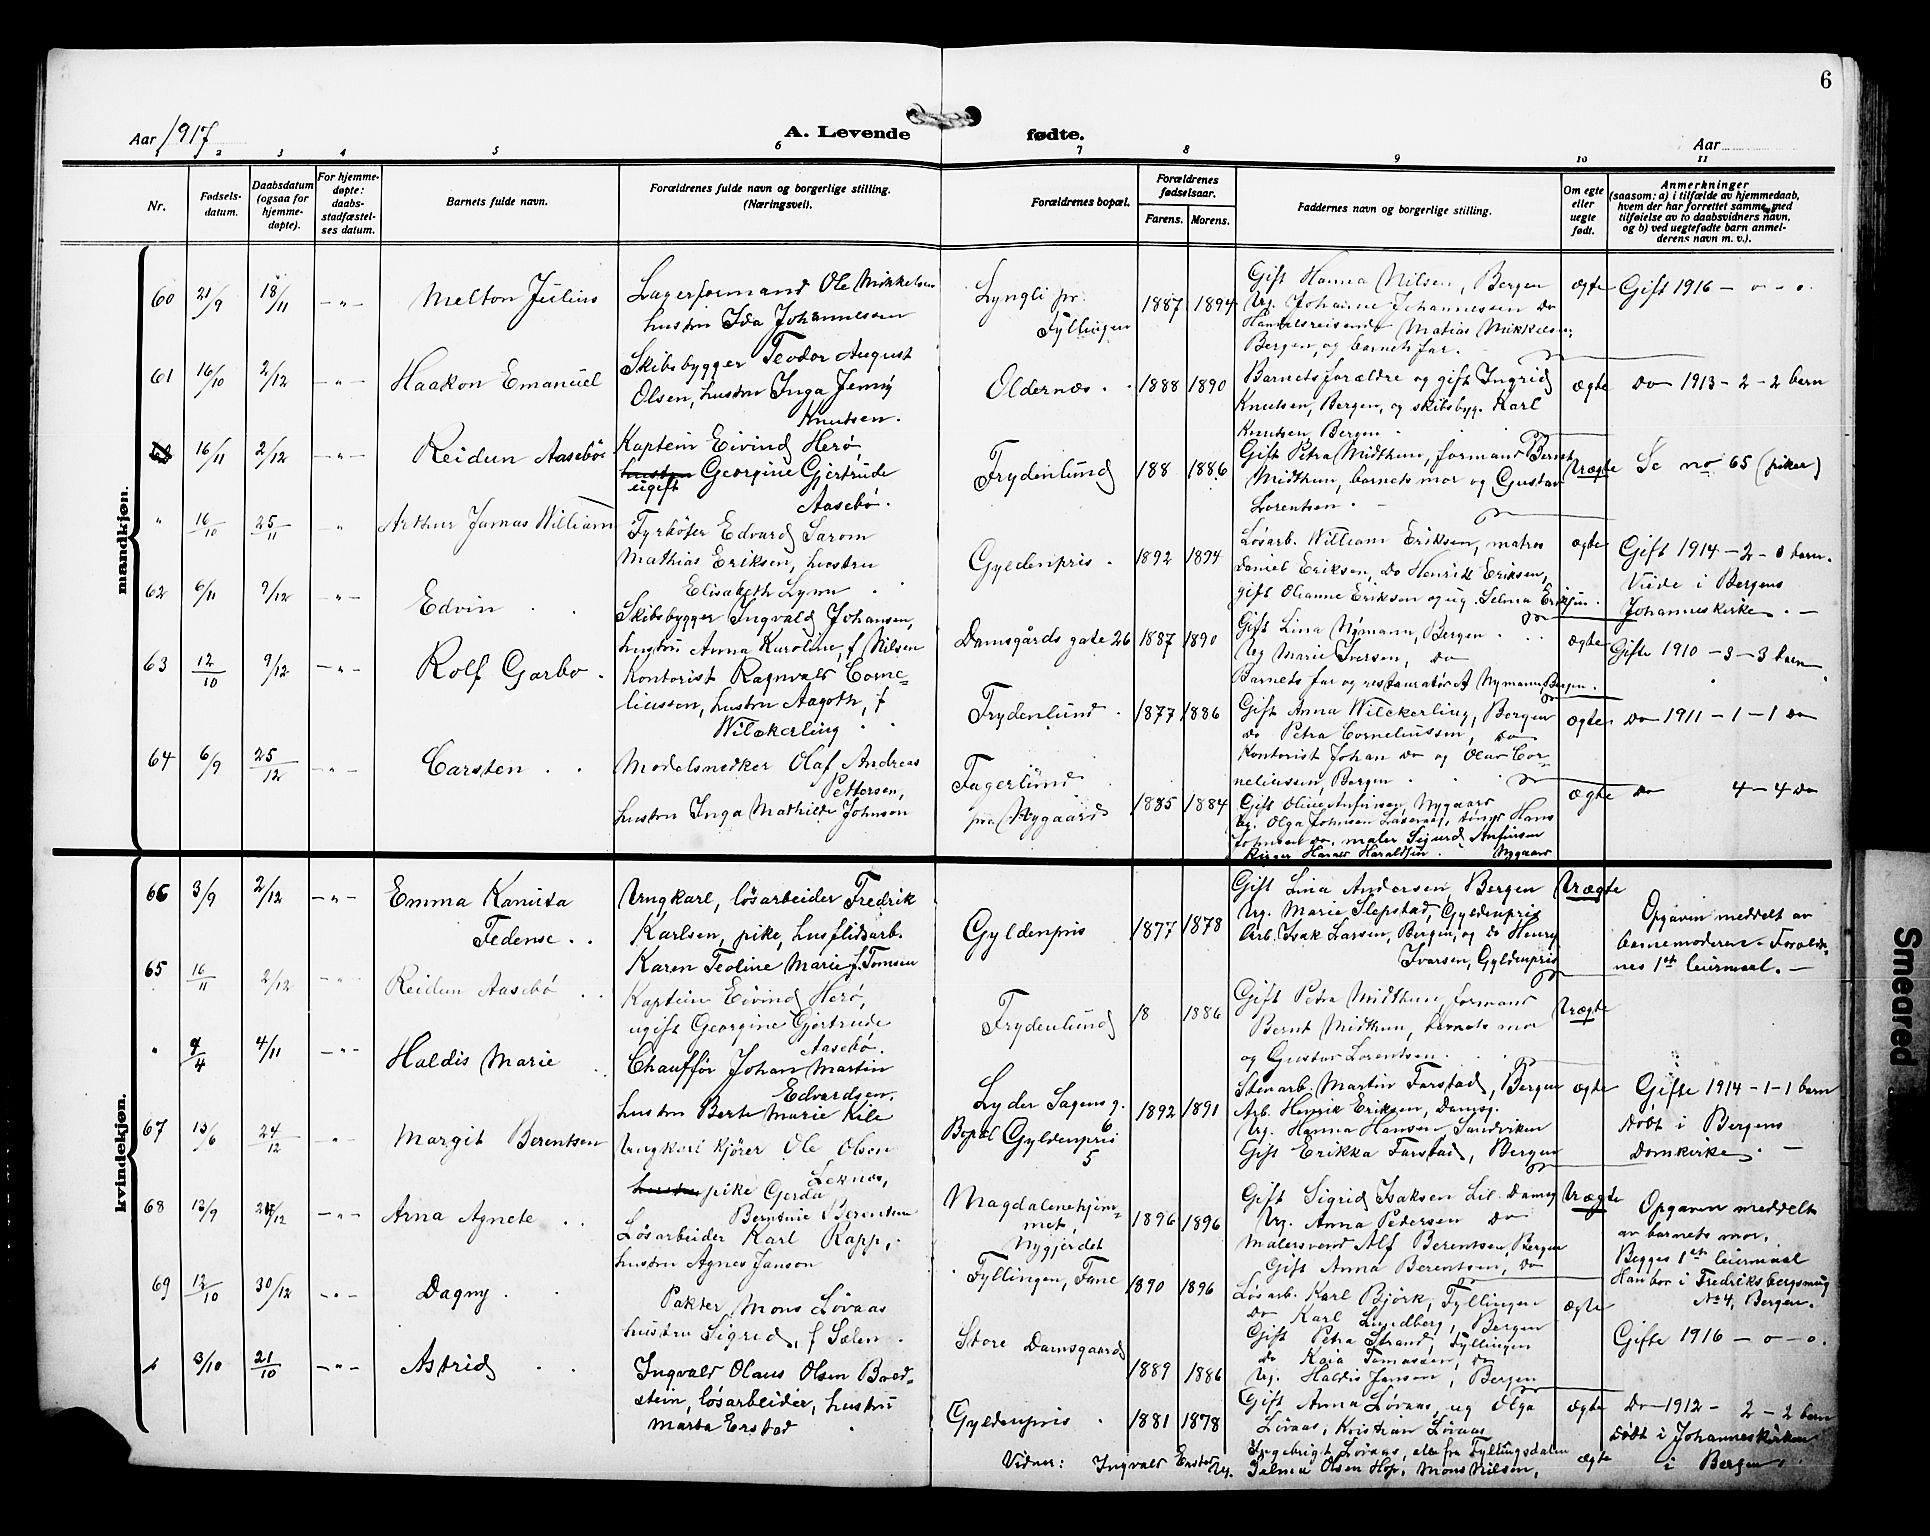 6
Aar 1917
A. Levende fødte.
Aar
1 2 3 4 5 6 7 8 9 10 11
Nr.
Fødsels-
datum.
Daabsdatum
(ogsaa for
hjemme-
døpte).
For hjemme-
døpte:
daabs-
stadfæstel-
ses datum.
Barnets fulde navn.
Forældrenes fulde navn og borgerlige stilling.
(Næringsvei).
Forældrenes bopæl.
Forældrenes
fødselsaar.
Farens. Morens.
Faddernes navn og borgerlige stilling.
Om egte
eller
uegte
født.
Anmerkninger
(saasom: a) i tilfælde av hjemmedaab,
hvem der har forrettet samme, med
tilføielse av to daabsvidners navn,
og b) ved uegtefødte barn anmel-
derens navn m. v.).
mandkjøn.
60 21/9 18/11 – „ – Melton Julius
Lagerformand Ole Mikkelsen
hustru Ida Johannessen
Lyngli pr.
Fyllingen
1887 1894
Gift Hanna Nilsen, Bergen
Ug. Johanne Johannessen do
Handelsreisende Matias Mikkelsen,
Bergen, og barnets far.
ægte
Gift 1916 – o – o.
61 16/10 2/12 – „ – Haakon Emanuel
Skibsbygger Teodor August
Olsen, hustru Inga Jenny
Knutsen.
Oldernæs
1888 1890
Barnets forældre og gift Ingrid
Knutsen, Bergen, og skibsbyg. Karl
Knutsen, Bergen
ægte
do 1913 – 2 – 2 barn
16/11 2/12 – „ – Reidun Aasebø
Kaptein Eivind Herø,
hustru Georgine Gjertrude
ugift Aasebø.
Frydenlund
188 1886
Gift Petra Midthun, formand Bernt
Midthun, barnets mor og Gustav
Lorentsen
Uægte
Se no 65 (piker)
„ 16/10 25/11 „ Arthur Jamas William
Fyrbøter Edvard Sarom
Mathias Eriksen, hustru
Elisabeth Lynn
Gyldenpris
1892 1894
Løsarb. William Eriksen, matros
Daniel Eriksen, do Henrik Eriksen,
gift Olianne Eriksen og ug. Selma Eriksen.
ægte
Gift 1914 – 2 – 0 barn.
Viede i Bergens
Johanneskirke. –
62 6/11 9/12 – „ – Edvin
Skibsbygger Ingvald Johansen,
hustru Anna Karoline, f Nilsen
Damsgårds gate 26
1887 1890
Gift Lina Nymann, Bergen
Ug Marie Iversen, do
Barnets far og restauratør A Nymann, Bergen.
ægte
Gifte 1910 – 3 – 3 barn
63 12/10 9/12 – „ – Rolf Garbo
Kontorist Ragnvald Corne-
liussen, hustru Aagoth, f
Wilckerling
Frydenlund
1877 1886
Gift Anna Wilckerling, Bergen
do Petra Corneliussen, do
Kontorist Johan do og Olav Cor-
neliussen, Bergen
ægte
do 1911 – 1 – 1 do
64 6/9 25/12 – „ – Carsten
Modelsnedker Olaf Andreas
Pettersen,
hustru Inga Mathilde Johnson
Fagerlund
pr Nygaard
1885 1884
Gift Oline Anfinsen, Nygaard
Ug. Olga Johnsen Laksevaag, Hans
Johnsen do, maler Sigurd Anfinsen
Harald Haraldsen Nygaard
ægte
do 4 – 4 do
kvindekjøn.
66 3/9 2/12 – „ – Emma Kanuta
Fedense
Ungkarl, løsarbeider Fredrik
Karlsen, pike, husflidsarb.
Karen Teoline Marie f. Tomsen
Gyldenpris
1877 1878
Gift Lina Andersen, Bergen
Ug. Marie Slepstad, Gyldenpris
Arb. Isak Larsen, Bergen, og do Henry
Ivarsen, Gyldenpris
Uægte
Opgaven meddelt av
barnemoderen. Foreldre-
nes 1ste leiermaal. –
65 16/11 2/12 Reidun Aasebø
Kaptein Eivind Herø,
ugift Georgine Gjertrude
Aasebø.
Frydenlund
18 1886
Gift Petra Midthun, formand
Bernt Midthun, barnets mor
og Gustav Lorentsen.
Uægte
„ 9/4 4/11 – „ – Haldis Marie
Chauffør Johan Martin
Edvardsen,
hustru Berte Marie Kile
Lyder Sagens g.
6
1892 1891
Stenarb. Martin Farstad, Bergen
Arb. Henrik Eriksen, Damsg.
Ug. Hanna Hansen, Sandviken
Gift Erikka Farstad, Bergen
ægte
Gifte 1914 – 1 – 1 barn
Døbt i Bergens
Domkirke. –
67 13/6 24/12 – „ – Margit Berentsen
Ungkarl kjører Ole Olsen
Leknes,
hustru pike Gerda
Bernsine Berentsen
Bopæl Gyldenpris
5
Magdalenehjem-
met,
Nygjerdet
1896 1896
Gift Sigrid Isaksen Lil. Damsg
Ug. Anna Pedersen do
Malersvend Alf Berentsen, Bergen
Gift Anna Berentsen, do
Uægte
Opgaven meddelt
av barnets mor.
Begges 1ste leiermaal
Han bor i Fredriksbergsmug
No 4, Bergen.
68 13/9 24/12 – „ – Arna Agnete
Løsarbeider Karl Rapp,
hustru Agnes Janson
Fyllingen, Fane
1890 1896
Løsarb. Karl Bjørk, Fyllingen
do Karl Lundberg, Bergen
Gift Petra Strand, Fyllingen
do Kaia Tomassen, do
Ug. Haldis Jansen, Bergen
ægte
Gifte 1916 – o – o.
69 12/10 30/12 – „ – Dagny
Pakter Mons Løvaas
hustru Sigrid, f Sælen
Store Damsgaard
1889 1886
Gift Anna Løvaas, ug Olga
Løvaas, Kristian Løvaas
Ingebrigt Løvaas, alle fra Fyllingsdalen
ægte
do 1912 – 2 – 2 barn
3/10 21/10 – „ – Astrid
Ingvald Olaus Olsen Bred-
stein, løsarbeider, hustru
Marta Erstad
Gyldenpris
1881 1878
Vidner: Ingvald Erstad Ug.
Selma Olsen Hop, Mons Nilsen,
ægte
Døbt i Johanneskirken
i Bergen.
Smeared